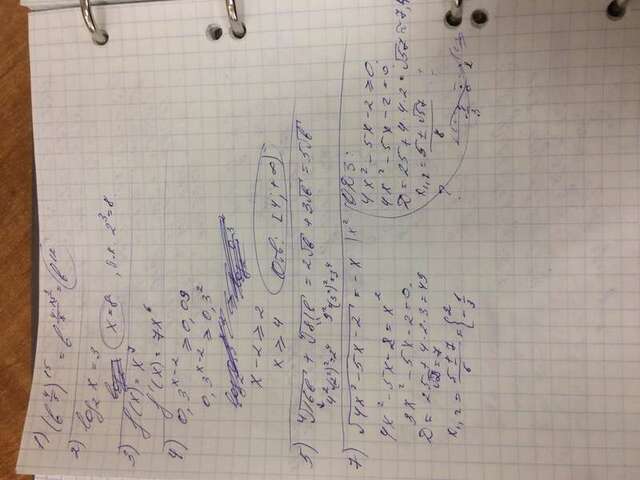 1) (b^(4/5))^15 = b^(4·15/5) = b^12
2) log₂ x = 3
x = 8, т.к. 2³ = 8.
3) f(x) = x⁷
f'(x) = 7x⁶
4) 0,3^(x-2) ≥ 0,09
0,3^(x-2) ≥ 0,3²
x - 2 ≥ 2
x ≥ 4 Отв: [4; +∞)
5) ⁴√16b + ⁴√81b = 2√b + 3√b = 5√b
4²=(2²)²=2⁴ 9²=(3²)²=3⁴
7) √4x²-5x-2 = -x |x²
4x² - 5x - 2 = x²
3x² - 5x - 2 = 0.
D = 25 + 4·2·3 = 49
√D = 7
x₁,₂ = (5±7)/6 = { 2 -1/3
ОДЗ:
4x² - 5x - 2 ≥ 0.
4x² - 5x - 2 = 0
D = 25 + 4·4·2 = √57 ≈ 7,4
x₁,₂ = (5±√57)/8
?